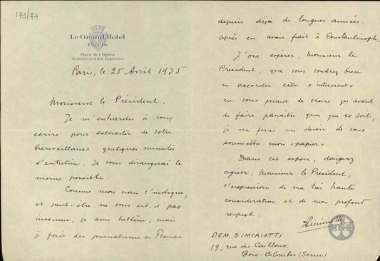 173/74
Le Grand Hotel
Paris
Place de l'Opéra
Paris, le 25 Avril 1935
Monsieur le Président,
Je m'enhardis à vous
écrire pour solliciter de votre
bienveillance quelques minutes
d'entretien. Je vous dérangerai le
moins possible.
Comme mon nom l'indique,
et peut-être ne vous est-il pas
inconnu, je suis hellène, mais
je fais du journalisme en France
depuis déjà de longues années,
après en avoir fait à Constantinople.
J'ose espérer, Monsieur le
Président, que vous voudrez bien
m'accorder cette "interview"
en vous priant de croire qu'avant
de faire paraître quoi que ce soit,
je me ferai un devoir de vous
soumettre mon "papier".
Dans cet espoir, daignez
agréer, Monsieur le Président,
l'expression de ma très haute
considération et de mon profond
respect.
DEM. SIMIRIOTTI
19, rue du
Bois-Colombes (Seine)